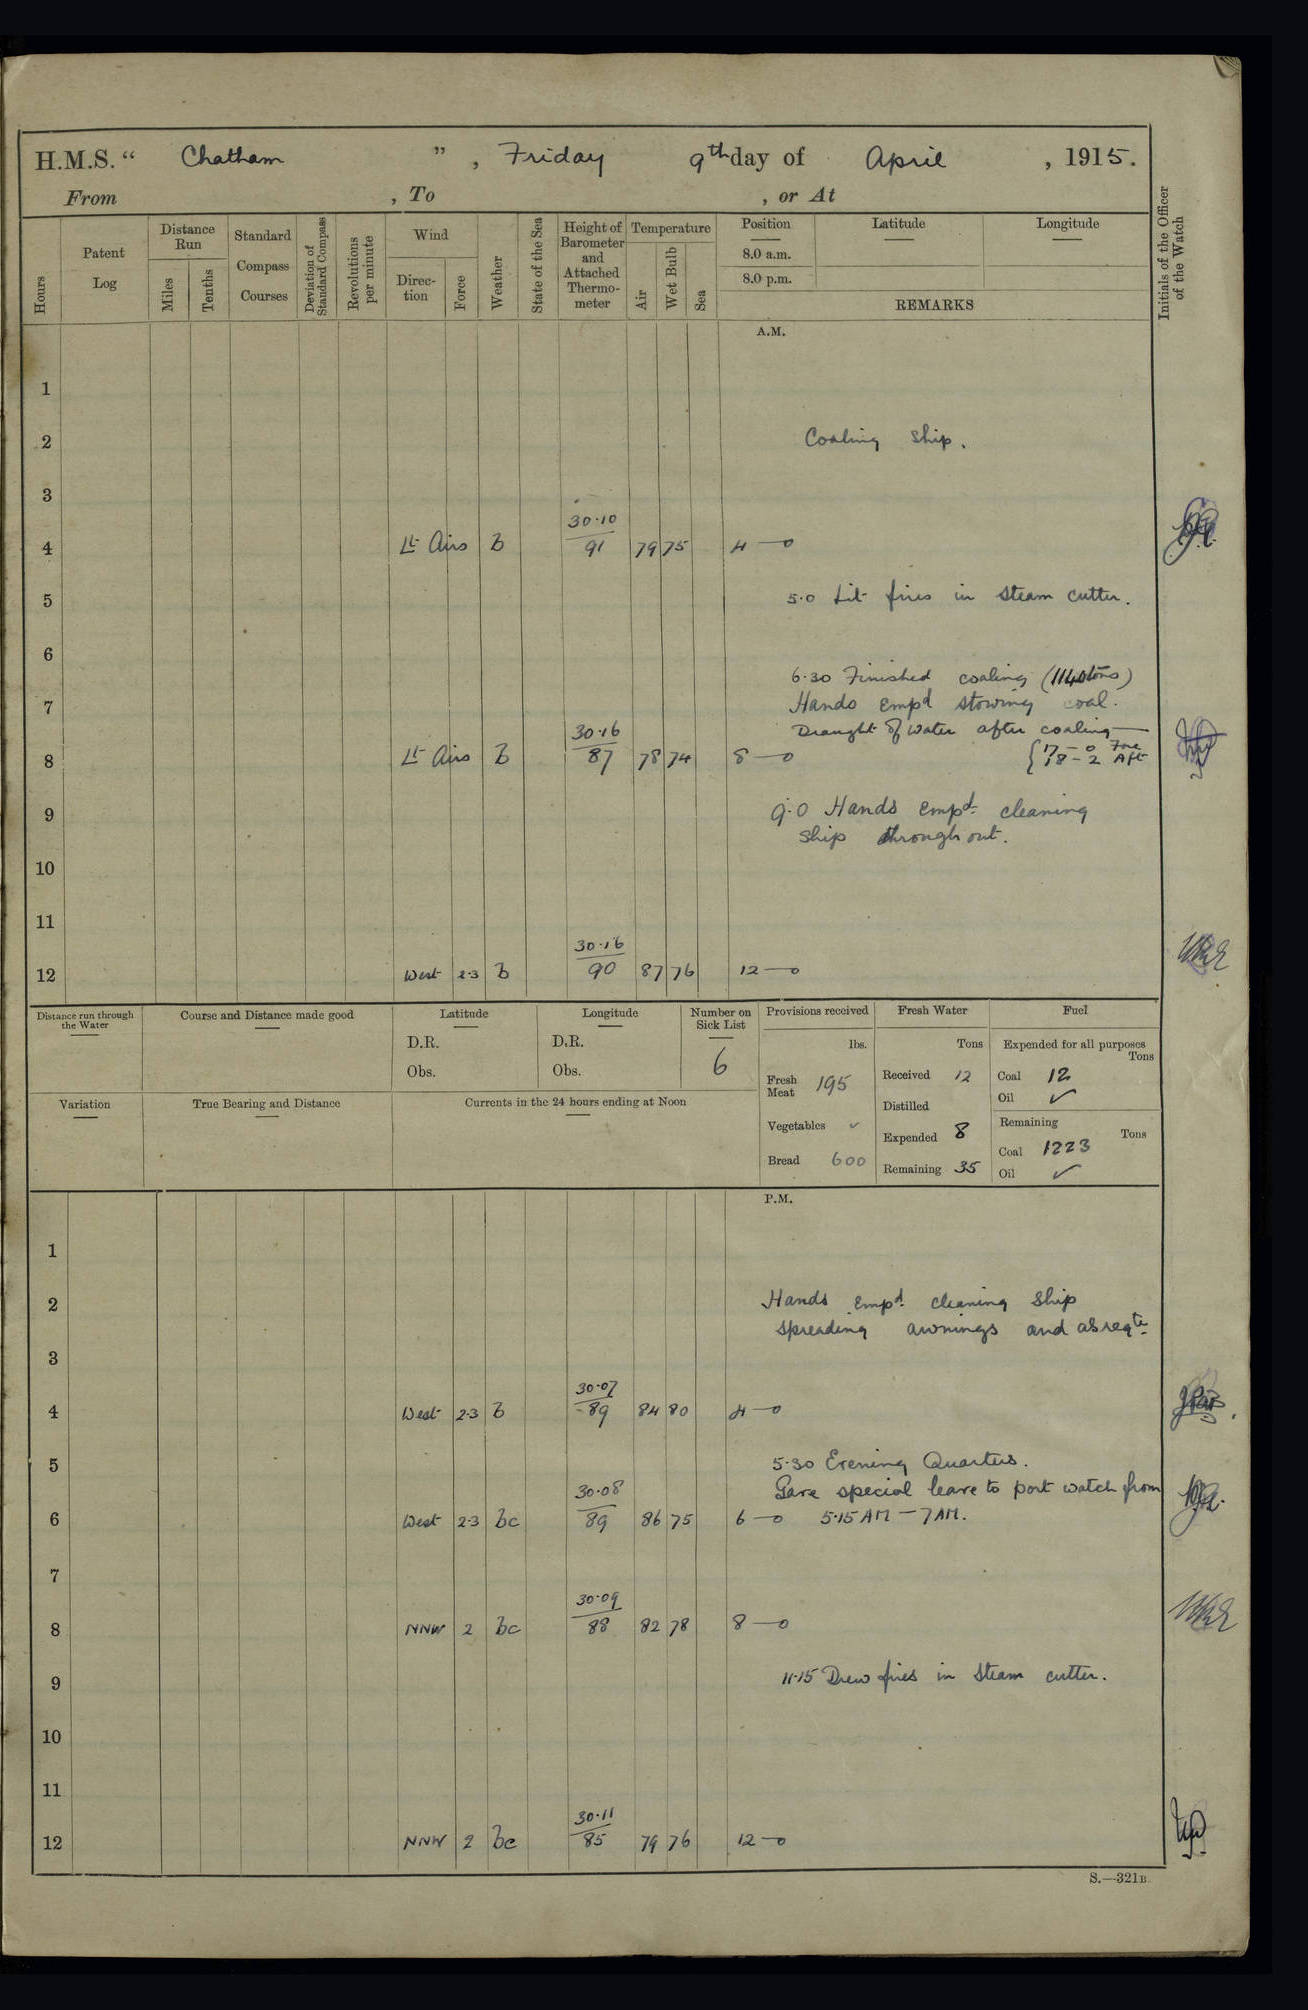 H.M.S. “ Chatham ”, Friday 9th day of April, 1915.
From , To , or At
Hours
Patent Log
Distance Run
Miles
Tenths
Standard Compass Courses
Deviation of Standard Compass
Revolutions per minute
Wind
Direction
Force
Weather
State of the Sea
Height of Barometer and Attached Thermometer
Temperature
Air
Wet Bulb
Sea
Position
8.0 a.m.
8.0 p.m.
Latitude
Longitude
REMARKS
Initials of the Officer of the Watch
A.M.
1
2 Coaling Ship.
3
30.10
4 Lt Airs b 91 79 75 4—0
5 5.0 Lit fires in Steam cutter.
6
6.30 Finished coaling (1140 tons)
7 Hands empd stowing coal.
30.16 Draught of water after coaling—
8 Lt Airs b 87 78 74 8—0 { 17 - 0 Fore
18 - 2 Aft
9 9.0 Hands empd cleaning
ship throughout.
10
11
30.16
12 West 2-3 b 90 87 76 12—0
Distance run through the Water
Course and Distance made good
Latitude
D.R.
Obs.
Longitude
D.R.
Obs.
Number on Sick List
6
Provisions received
lbs.
Fresh Meat 195
Vegetables ✓
Bread 600
Fresh Water
Tons
Received 12
Distilled
Expended 8
Remaining 35
Fuel
Expended for all purposes
Tons
Coal 12
Oil ✓
Remaining
Tons
Coal 1223
Oil ✓
Variation
True Bearing and Distance
Currents in the 24 hours ending at Noon
P.M.
1
2 Hands empd cleaning Ship
spreading awnings and as reqte
3
30.07
4 West 2-3 b 89 84 80 4—0
5 5.30 Evening Quarters.
30.08 Gave special leave to port watch from
6 West 2-3 bc 89 86 75 6—0 5.15 AM — 7 AM.
7
30.09
8 NNW 2 bc 88 82 78 8—0
9 11.15 Drew fires in Steam cutter.
10
11
30.11
12 NNW 2 bc 85 79 76 12—0
S.—321B.